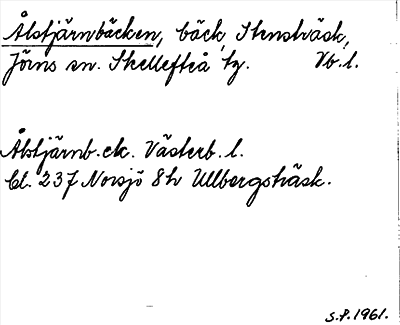 Ålstjärnbäcken, bäck, Stensträsk,
Jörns sn. Skellefteå tg. Vb. l.
Ålstjärnb. ek. Västerb. l.
Bl. 237 Norsjö 8h Ullbergsträsk.
S.P. 1961.